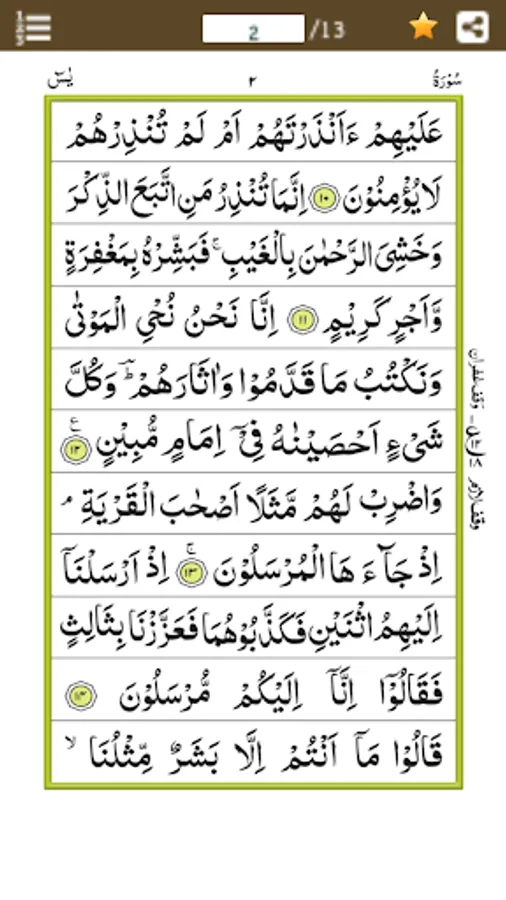 2 /13
سُوْرَةُ ٢ يٰسٓ
عَلَيْهِمْ ءَاَنْذَرْتَهُمْ اَمْ لَمْ تُنْذِرْهُمْ
لَا يُؤْمِنُوْنَ ۝١٠ اِنَّمَا تُنْذِرُ مَنِ اتَّبَعَ الذِّكْرَ
وَخَشِىَ الرَّحْمٰنَ بِالْغَيْبِ ۚ فَبَشِّرْهُ بِمَغْفِرَةٍ
وَّاَجْرٍ كَرِيْمٍ ۝١١ اِنَّا نَحْنُ نُحْىِ الْمَوْتٰى
وَنَكْتُبُ مَا قَدَّمُوْا وَاٰثَارَهُمْ ؕ وَكُلَّ
شَىْءٍ اَحْصَيْنٰهُ فِىْٓ اِمَامٍ مُّبِيْنٍ ۝١٢ ع
وَاضْرِبْ لَهُمْ مَّثَلًا اَصْحٰبَ الْقَرْيَةِ ۘ
اِذْ جَآءَ هَا الْمُرْسَلُوْنَ ۝١٣ ۚ اِذْ اَرْسَلْنَآ
اِلَيْهِمُ اثْنَيْنِ فَكَذَّبُوْهُمَا فَعَزَّزْنَا بِثَالِثٍ
فَقَالُوْٓا اِنَّآ اِلَيْكُمْ مُّرْسَلُوْنَ ۝١٤
قَالُوْا مَآ اَنْتُمْ اِلَّا بَشَرٌ مِّثْلُنَا ۙ
وقف غفران
وقف لازم